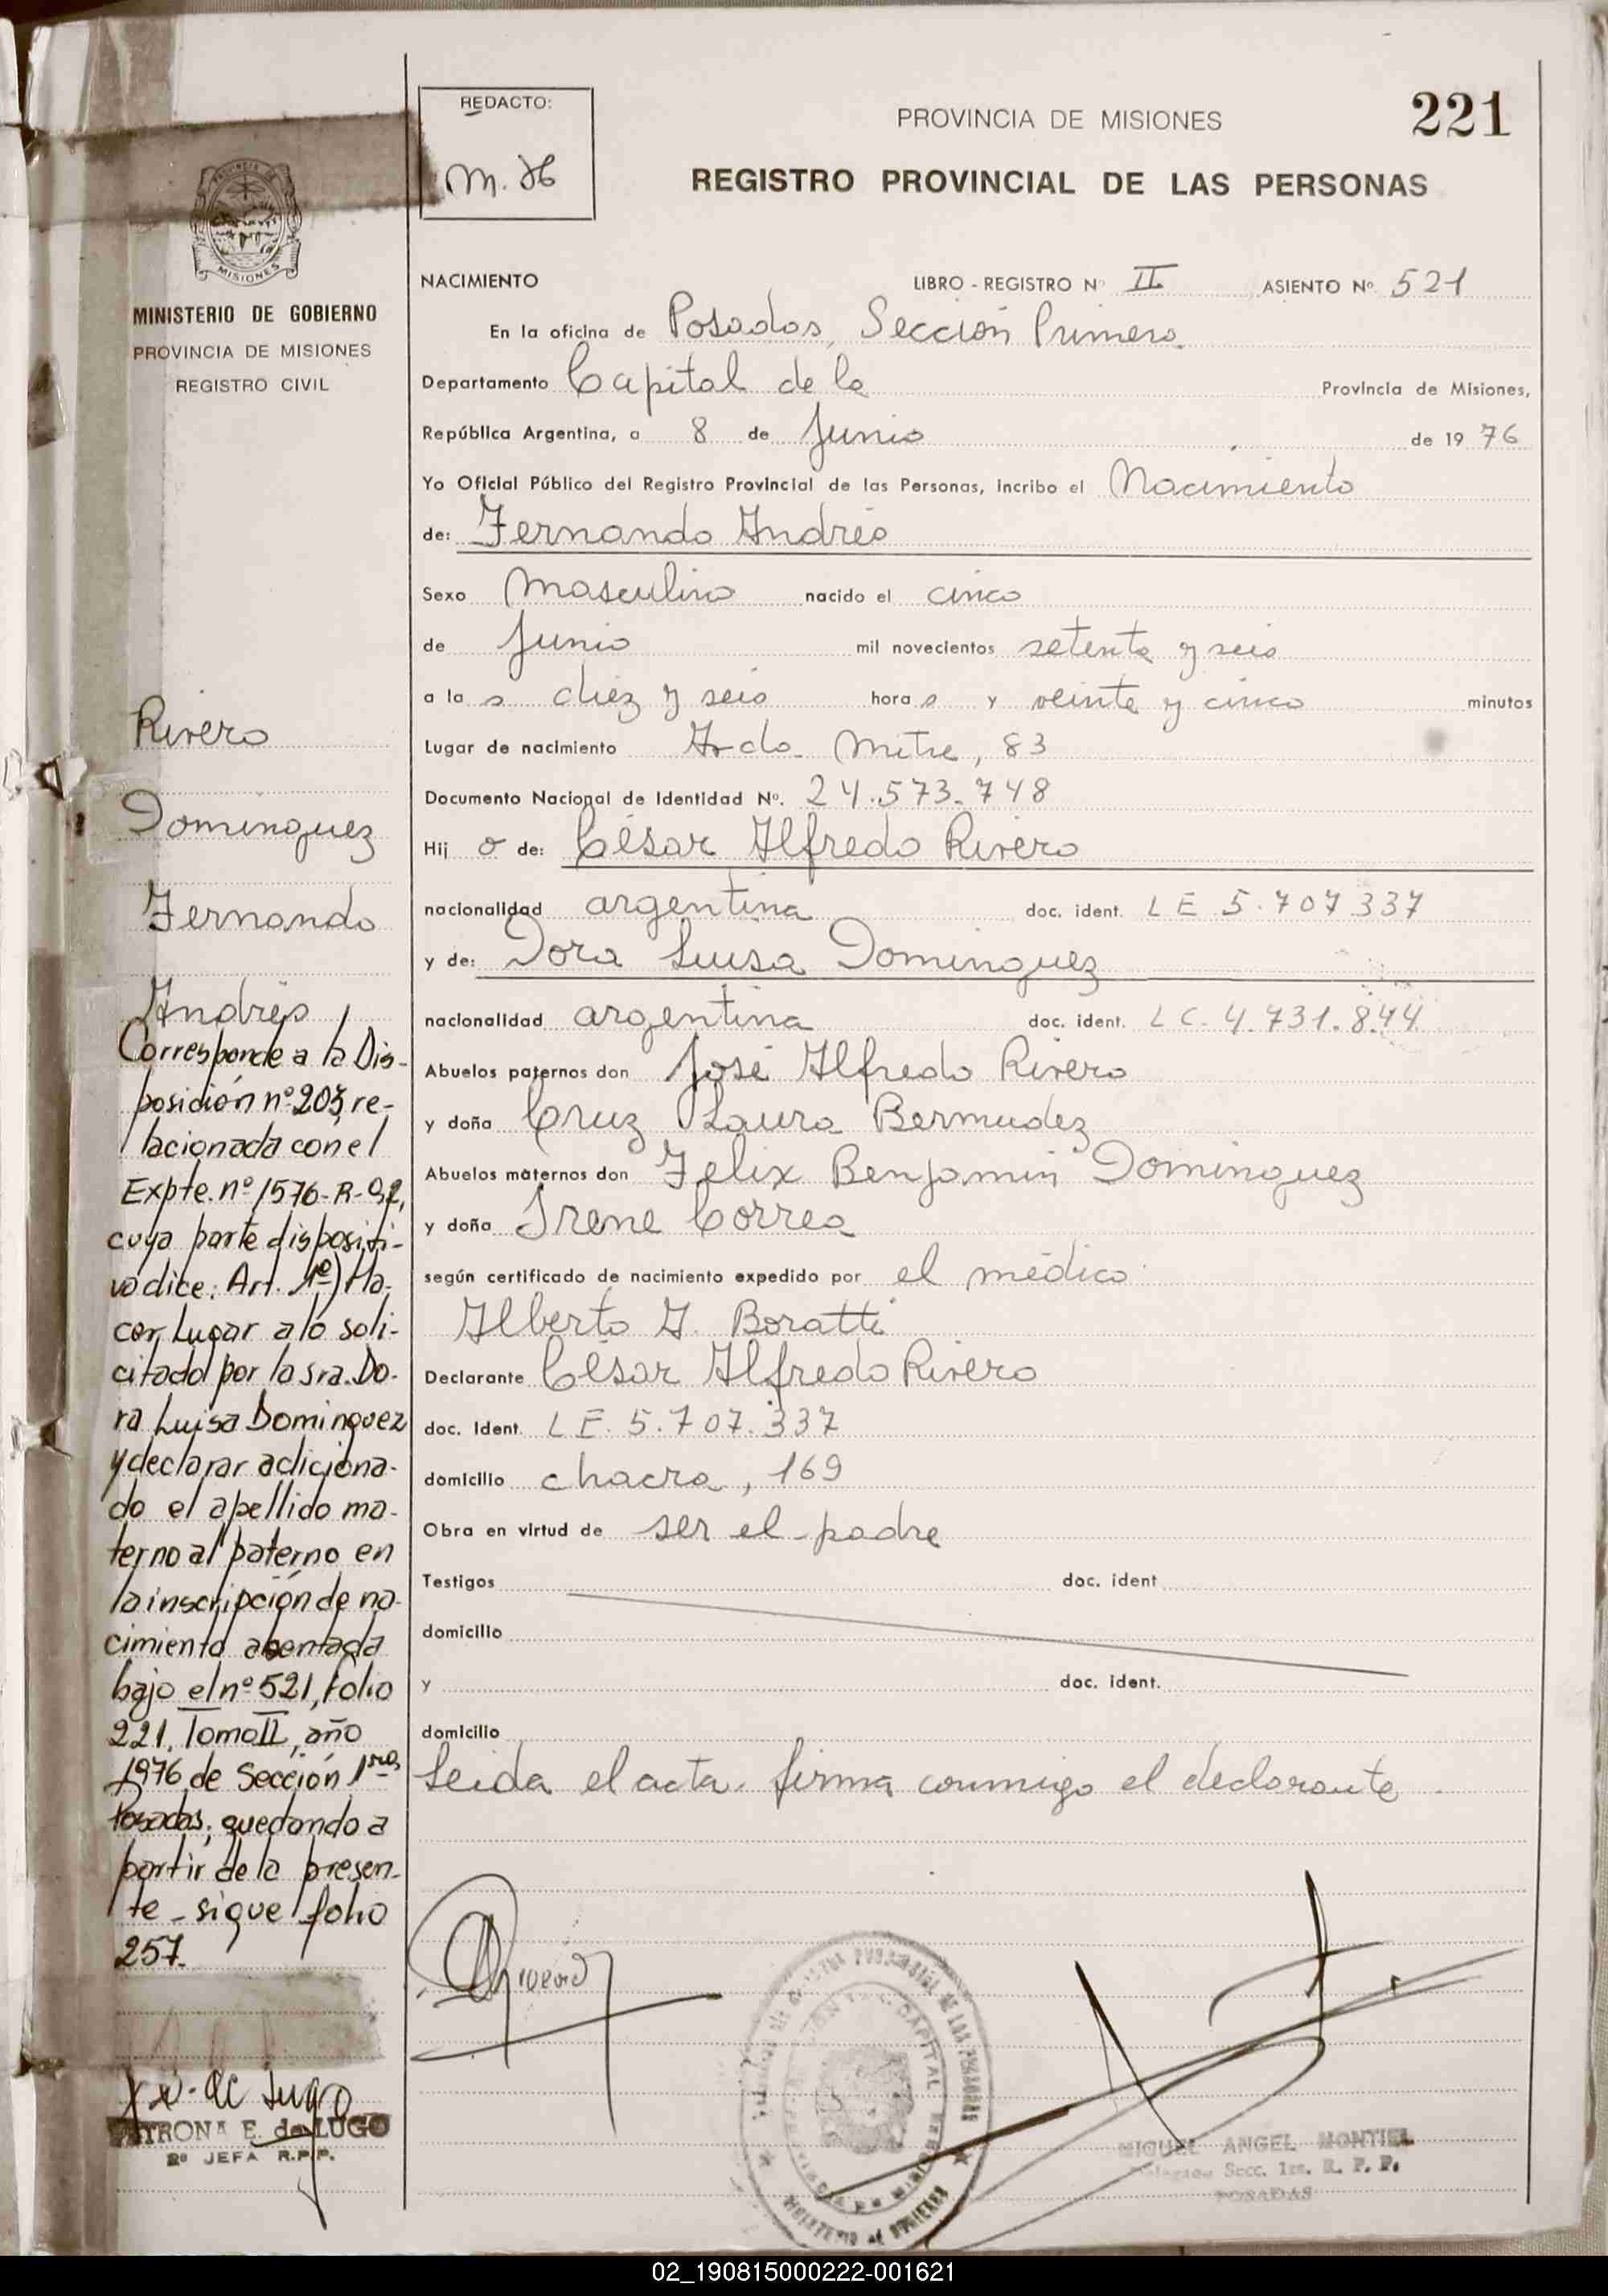 REDACTO:
M. 76
PROVINCIA DE MISIONES
221
REGISTRO PROVINCIAL DE LAS PERSONAS
MISIONES
MINISTERIO DE GOBIERNO
PROVINCIA DE MISIONES
REGISTRO CIVIL
NACIMIENTO LIBRO - REGISTRO Nº II ASIENTO Nº 521
En la oficina de Posadas, Sección Primera
Departamento Capital de la Provincia de Misiones,
República Argentina, a 8 de Junio de 19 76
Yo Oficial Público del Registro Provincial de las Personas, incribo el Nacimiento
de: Fernando Andrés
Sexo Masculino nacido el cinco
de Junio mil novecientos setenta y seis
a la s diez y seis hora s y veinte y cinco minutos
Lugar de nacimiento Avda. Mitre, 83
Documento Nacional de Identidad Nº. 24.573.748
Hij o de: César Alfredo Rivero
nacionalidad argentina doc. ident. LE 5.707.337
y de: Dora Luisa Dominguez
nacionalidad argentina doc. ident. LC. 4.731.844
Abuelos paternos don José Alfredo Rivero
y doña Cruz Laura Bermudez
Abuelos maternos don Felix Benjamin Dominguez
y doña Irene Correa
según certificado de nacimiento expedido por el médico
Alberto A. Boratti
Declarante César Alfredo Rivero
doc. Ident. LE. 5.707.337
domicilio chacra, 169
Obra en virtud de ser el padre
Testigos doc. ident
domicilio
y doc. ident.
domicilio
Leida el acta, firma conmigo el declarante
Rivero
Dominguez
Fernando
Andrés
Corresponde a la Dis-
posición nº 203, re-
lacionada con el
Expte. nº 1576-R-92,
cuya parte dispositi-
va dice: Art. 1º) Ha-
cer Lugar a lo soli-
citado por la sra. Do-
ra Luisa Dominguez
y declarar adiciona-
do el apellido ma-
terno al paterno en
la inscripción de na-
cimiento asentada
bajo el nº 521, folio
221, Tomo II, año
1976, de Sección 1ra
Posadas; quedando a
partir de la presen-
te - sigue folio
257.
PETRONA E. de LUGO
2º JEFA R.P.P.
MIGUEL ANGEL MONTIEL
Delegado Secc. 1ra. R. P. P.
POSADAS
02_190815000222-001621